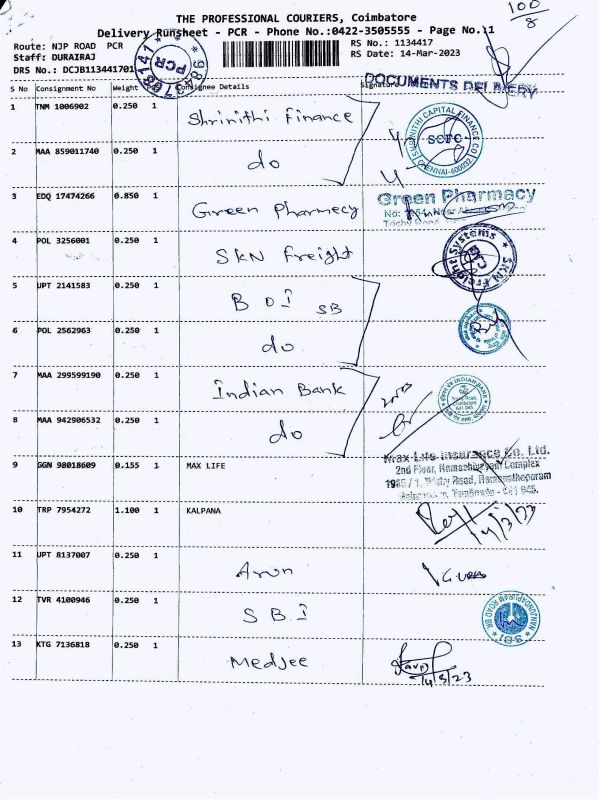 THE PROFESSIONAL COURIERS, Coimbatore
Delivery Runsheet - PCR - Phone No.:0422-3505555 - Page No.:1
100/8
Route: NJP ROAD PCR
RS No.: 1134417
Staff: DURAIRAJ
RS Date: 14-Mar-2023
DRS No.: DCJB113441701
PCR
DOCUMENTS DELIVERY
S No Consignment No Weight Consignee Details Signature
1 TNM 1006902 0.250 1 Shrinithi Finance
SHRINITHI CAPITAL FINANCE CHENNAI-600032
SCFC
2 MAA 859011740 0.250 1 do
3 EDQ 17474266 0.850 1 Green Pharmecy
Green Pharmacy
Trichy Road
4 POL 3256001 0.250 1 SKN Freight
SKN Freight Systems
5 UPT 2141583 0.250 1 BOI SB
6 POL 2562963 0.250 1 do
7 MAA 299599190 0.250 1 Indian Bank
INDIAN BANK
8 MAA 942906532 0.250 1 do
9 GGN 98018609 0.155 1 MAX LIFE
Max Life Insurance Co. Ltd.
2nd Floor, Namashivayam Complex
Trichy Road, Ramanathapuram
10 TRP 7954272 1.100 1 KALPANA
14/3/23
11 UPT 8137007 0.250 1 Arun
12 TVR 4100946 0.250 1 SBI
13 KTG 7136818 0.250 1 Medjee
14/3/23